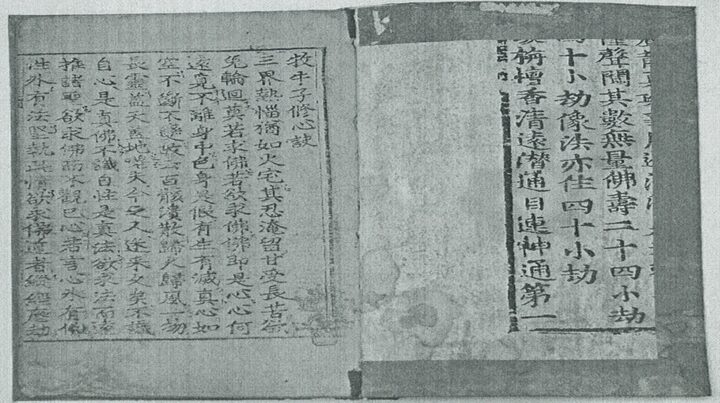 聲聞其數無量佛壽二十四小劫
十小劫像法亦住四十小劫
栴檀香清遠潜通目連神通第一
牧牛子修心訣
三界熱惱猶如火宅其忍淹留甘受長苦欲
免輪迴莫若求佛若欲求佛佛即是心心何
遠覓不離身中色身是假有生有滅真心如
空不斷不變故云百骸潰散歸火歸風一物
長靈盖天盖地嗟夫今之人迷來久矣不識
自心是真佛不識自性是真法欲求法而遠
推諸聖欲求佛而不觀己心若言心外有佛
性外有法堅執此情欲求佛道者縱經塵劫